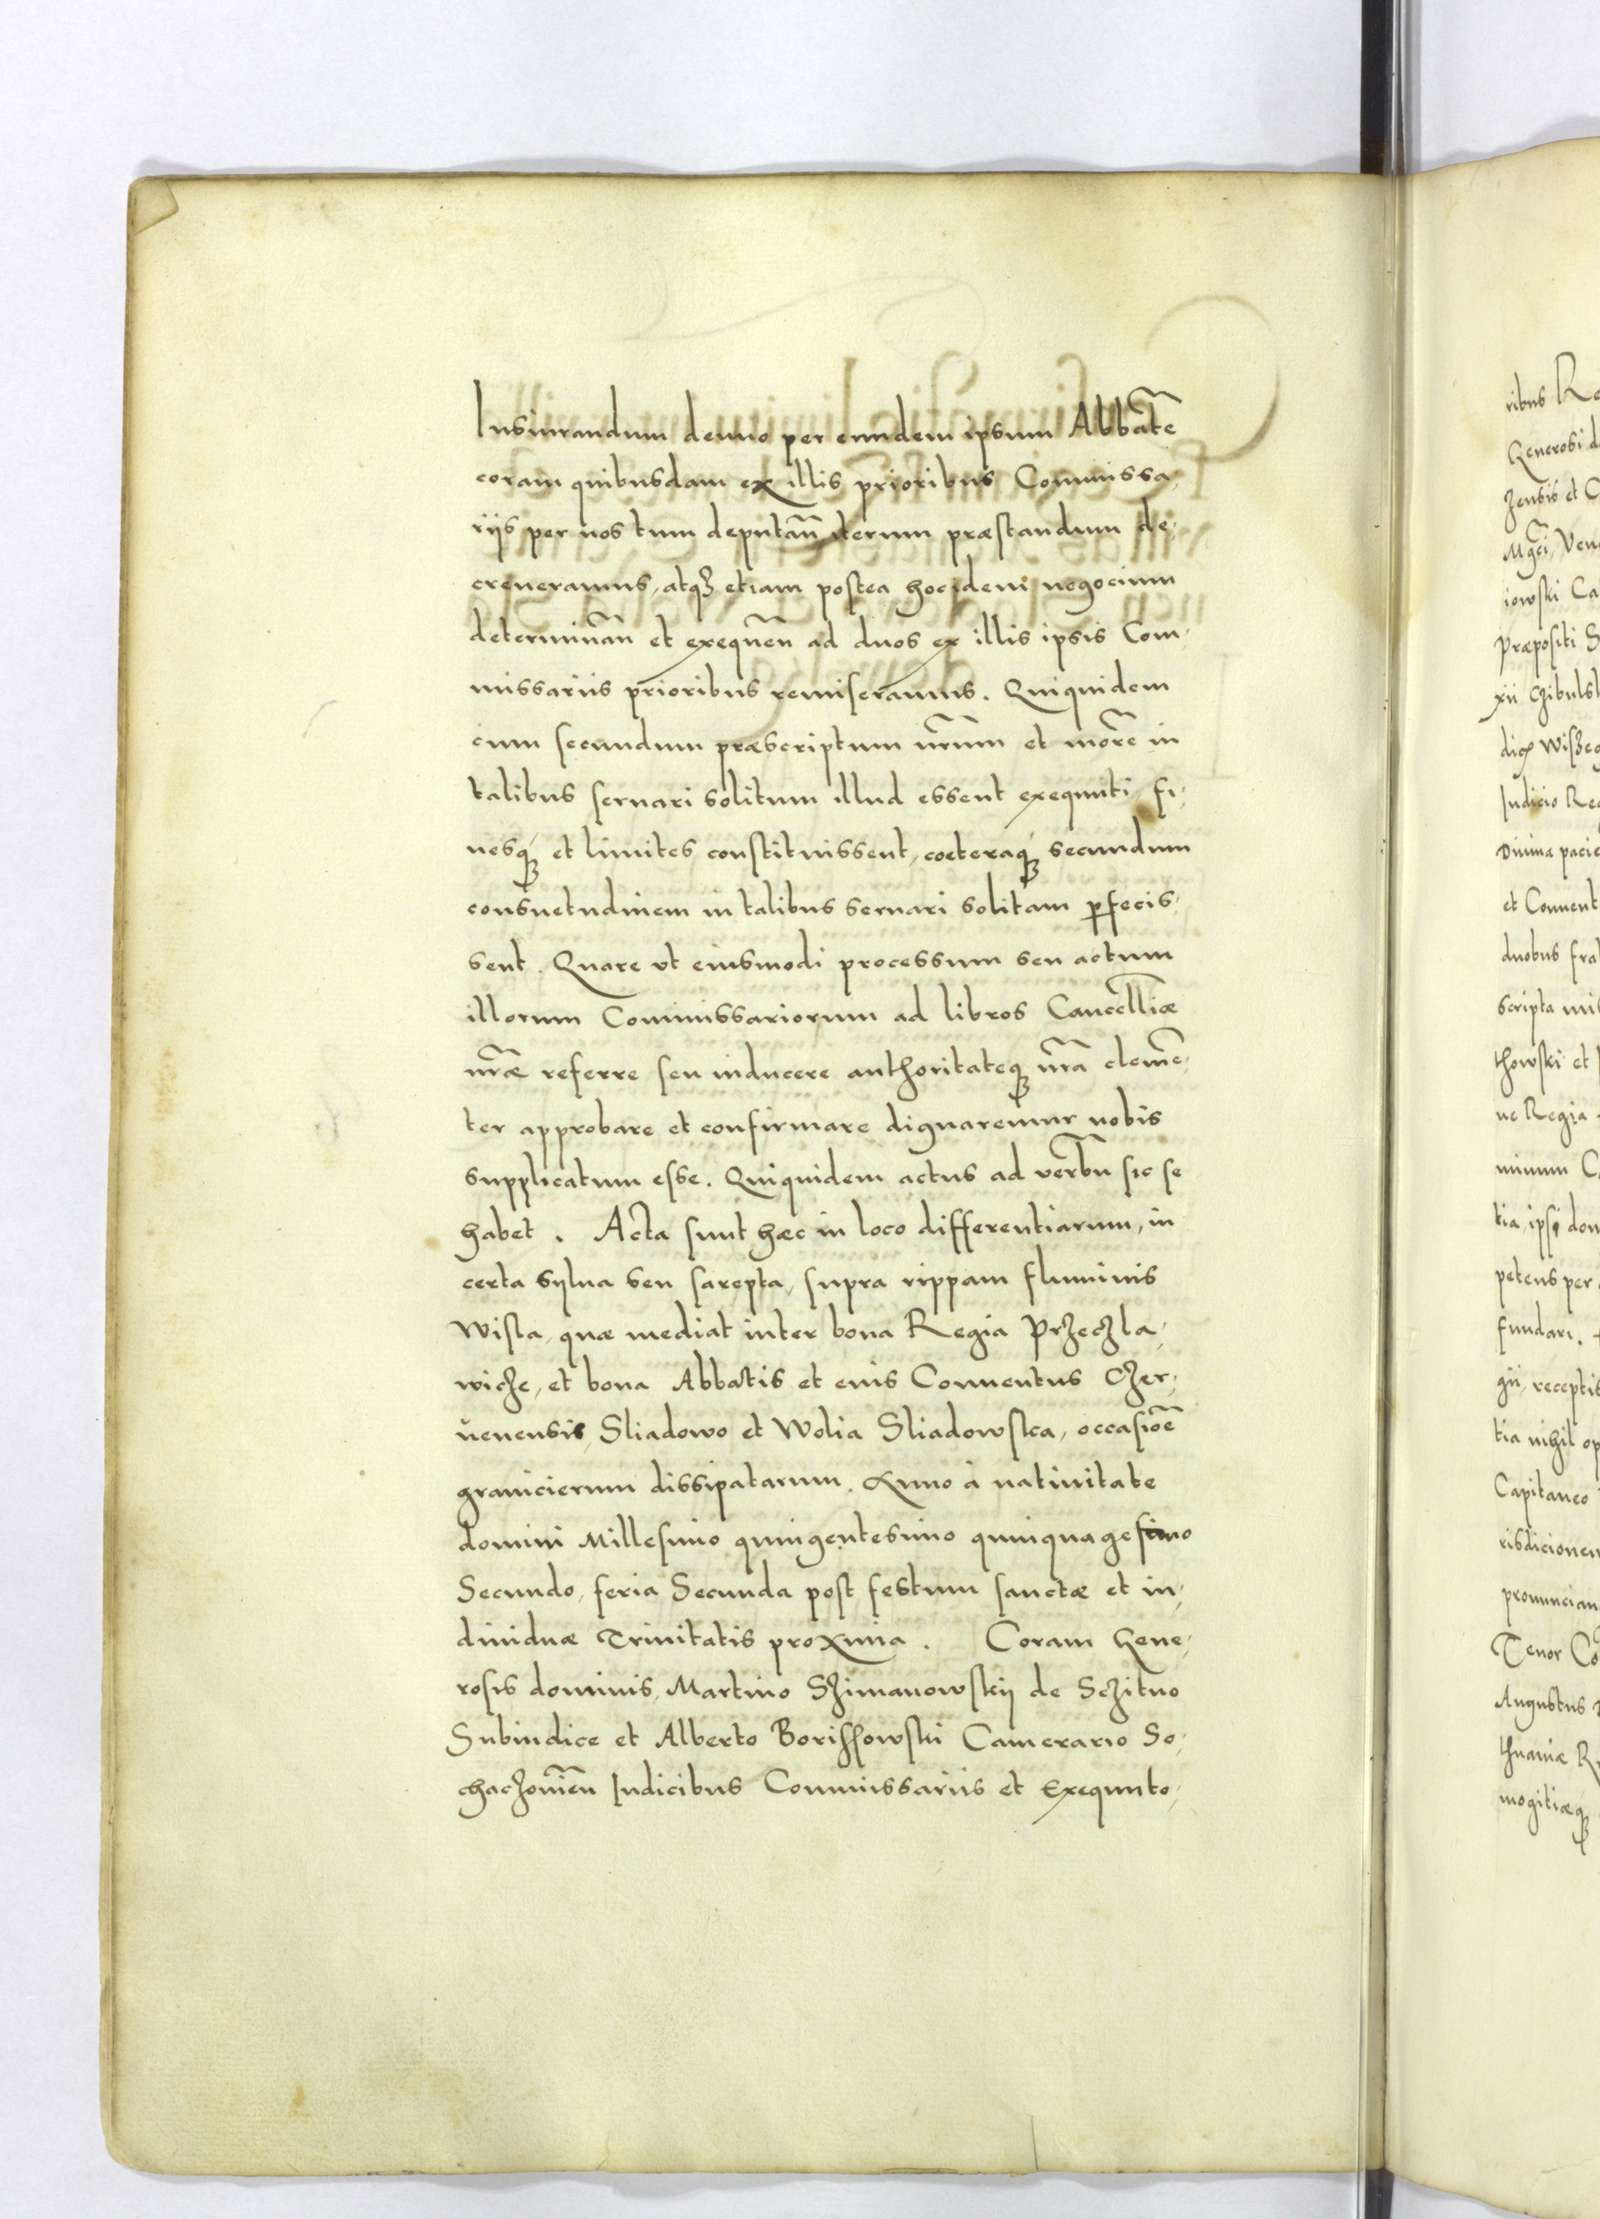 Iusiurandum denuo per eundem ipsum Abbatē
coram quibusdam ex illis prioribus Commissa,
rijs per nos tum deputañ iterum præstandum de,
creueramus, atqꝫ etiam postea hoc idem negocium
determinañ et exequeñ ad duos ex illis ipsis Com,
missariis prioribus remiseramus. Quiquidem
cum secundum præscriptum nr̃um et morē in
talibus seruari solitum illud essent exequuti, fi,
nesqꝫ et limites constituissent, coeteraqꝫ secundum
consuetudinem in talibus seruari solitam ꝑfecis,
sent. Quare vt eiusmodi processum seu actum
illorum Commissariorum ad libros Cancell̃iæ
nr̃æ referre seu inducere authoritateqꝫ nr̃a clemē,
ter approbare et confirmare dignaremur nobis
supplicatum esse. Quiquidem actus ad verbū sic se
habet. Acta sunt hæc in loco differentiarum, in
certa sylua seu sarepta, supra rippam fluminis
Wisla, quæ mediat inter bona Regia Przeczla,
wicze, et bona Abbatis et eius Conuentus Czer,
uenensis, Sliadowo et Wolia Sliadowska, occasiōe
granicierum dissipatarum. Anno à natiuitate
domini Millesimo quingentesimo quinquagesimo
Secundo, feria Secunda post festum sanctæ et in,
diuiduæ Trinitatis proxima. Coram Gene,
rosis dominis, Martino Szimanowskij de Sczitno
Subiudice et Alberto Borissowski Camerario So,
chaczouieñ Iudicibus Commissariis et Exequuto,
ribus
Generosi
zensis et
Mgc̃i
iowski
Præpositi
xii Czibuls
Iudicio
Diuina
et Conuent
duobus
scripta
thowski et
ne Regia
minum
tia, ipsi
petens per
fundari.
gii, receptis
tia nihil
Capitaneo
risdicionem
Tenor
Augustus
thuaniæ
mogitiæqꝫ